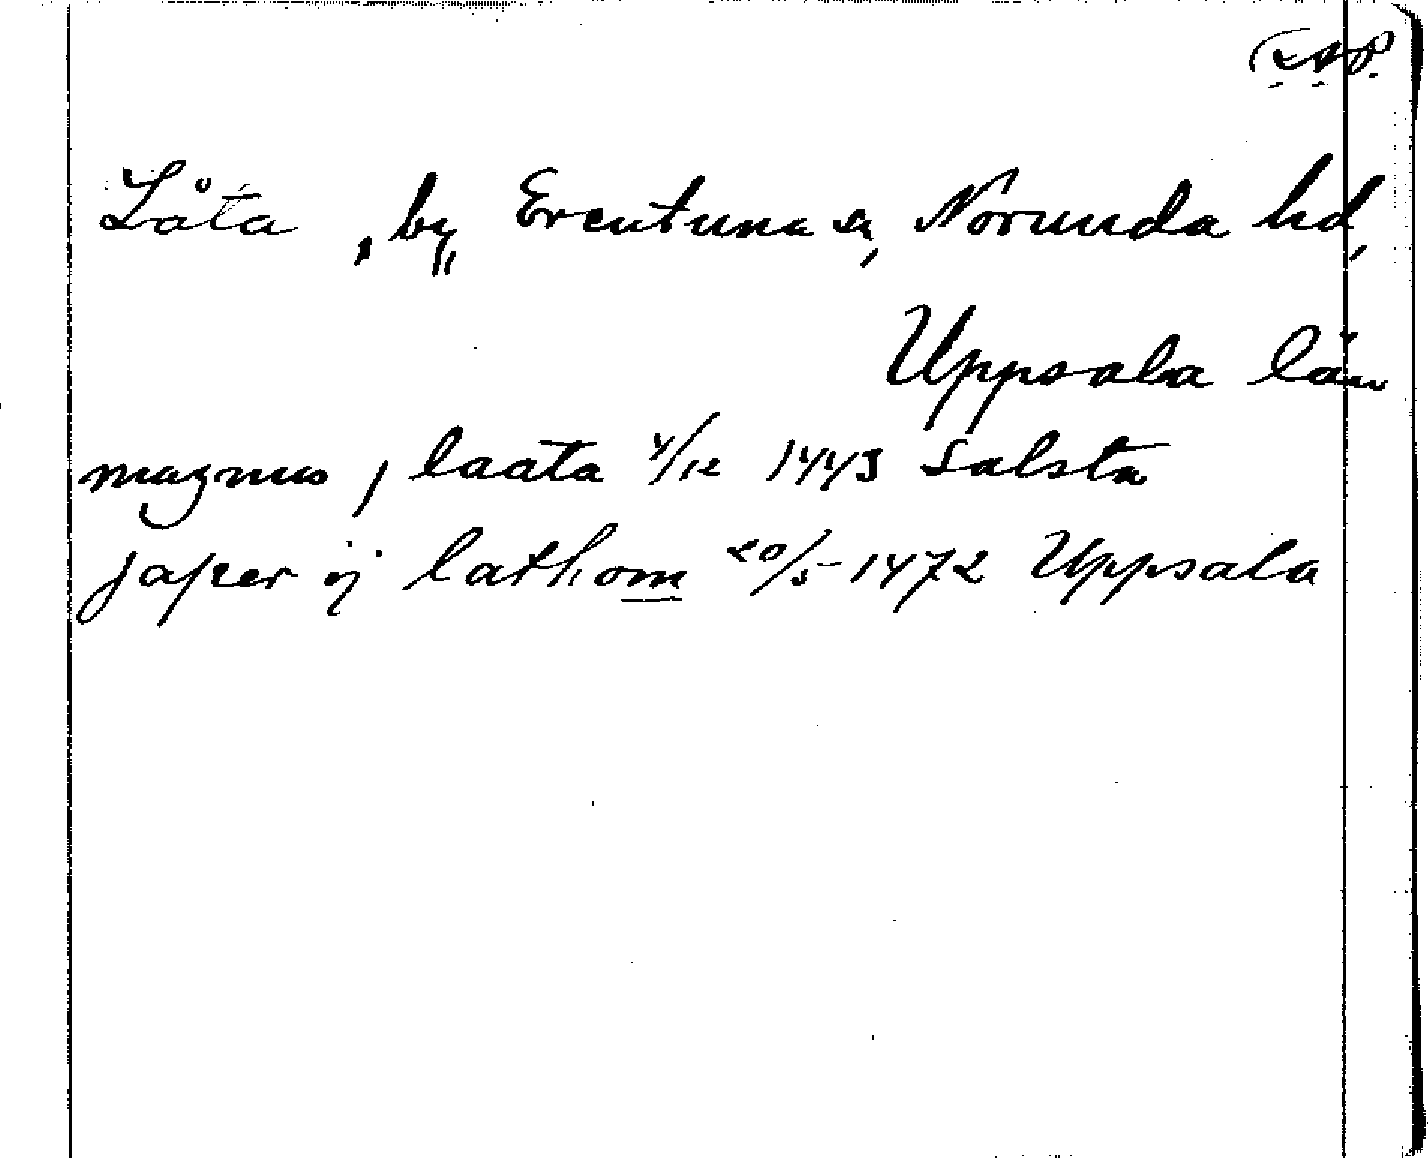 Låta, by, Erentuna sn, Norunda hd,
Uppsala län
magnus j laata 4/12 1443 Salsta
japer ij lathom 20/5 1472 Uppsala